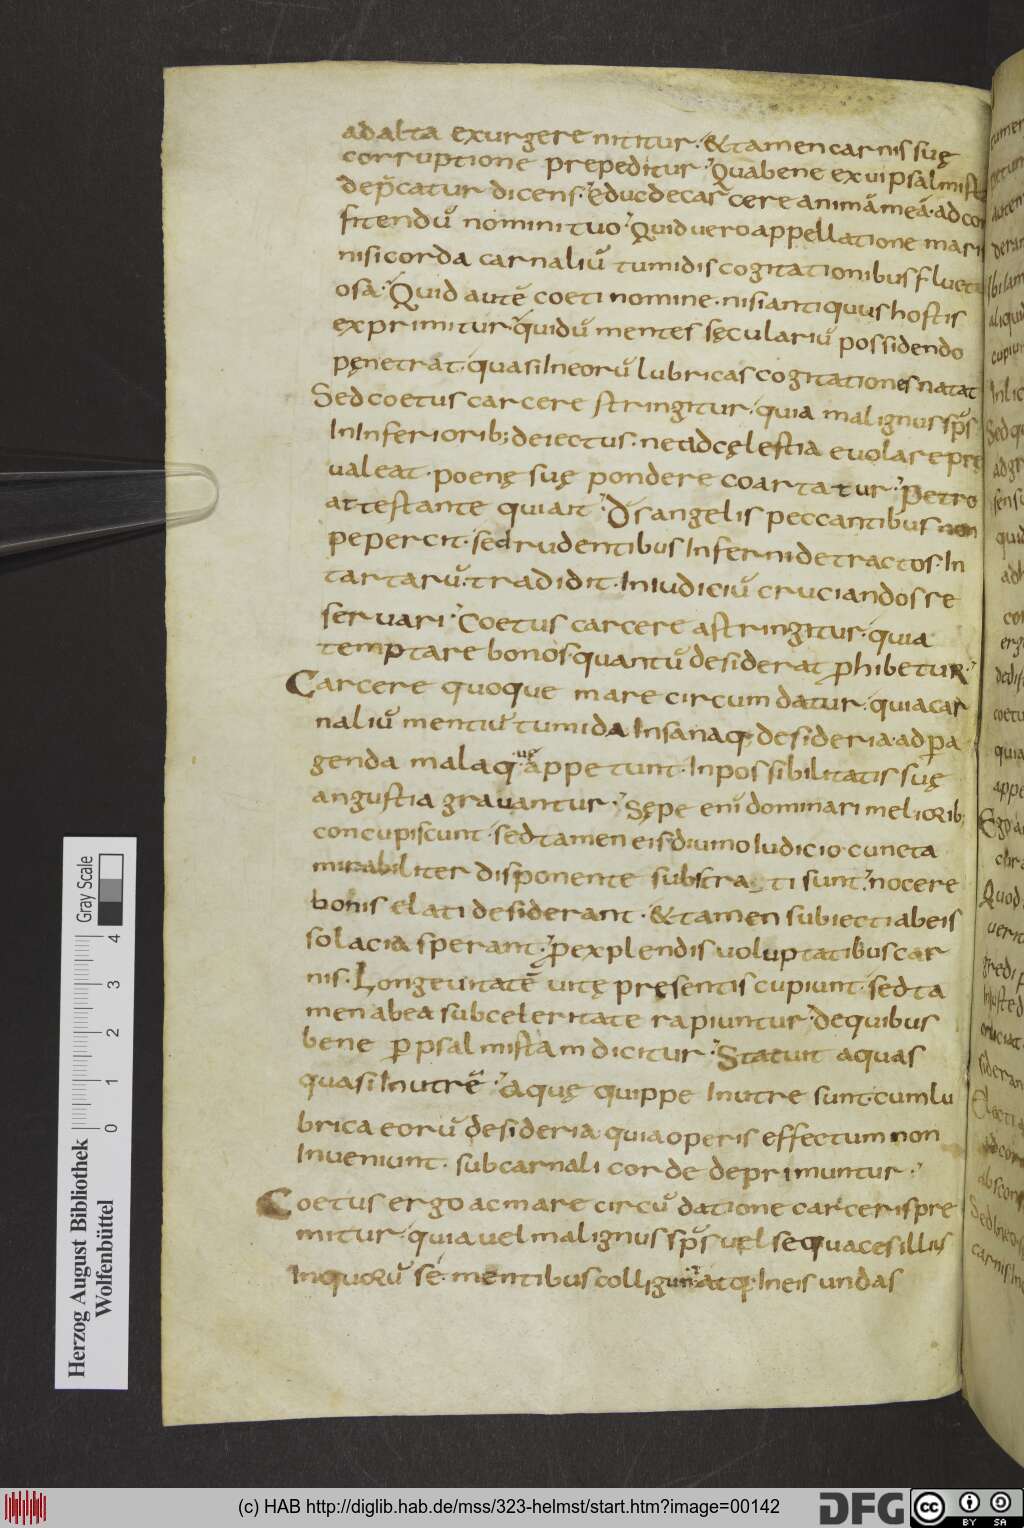 ad alta exurgere nititur · & tamen carnis suę
corruptione prepeditur · Qua bene ex ui psalmist
dep̄catur dicens · Educ de carcere animā meā · ad con
fitendū nomini tuo · Quid uero appellatione mari
nisi corda carnaliū tumidis cogitationibus fluctu
osa · Quid autē coeti nomine · nisi antiquus hostis
exprimitur · qui dū mentes sęculariū possidendo
penetrat · quasi In eorū lubricas cogitationes natat
Sed coetus carcere stringitur · quia malignus sp̄s
In Inferiorib; deiectus · ne ad cęlestia euolare pre
ualeat · poenę suę pondere coartatur · Petro
attestante qui ait · Ds̄ angelis peccantibus non
pepercit · sed rudentibus Inferni detractos · In
tartarū · tradidit · In iudiciū cruciandos re
seruari · Coetus carcere astringitur · quia
temptare bonos quantū desiderat ꝓhibetur ·
Carcere quoque mare circumdatur · quia car
naliū mentiū tumida Insanaq; desideria · ad ꝑa
genda mala q̄ appetunt · Inpossibilitatis suę
angustia grauantur · Sępe eni dominari meliorib;
concupiscunt · sed tamen eis diuino Iudicio cuncta
mirabiliter disponente substrati sunt · nocere
bonis elati desiderant · & tamen subiecti ab eis
solacia sperant · ꝓ explendis uoluptatibus car
nis · Longeuitatē uitę presentis cupiunt · sed ta
men ab ea sub celeritate rapiuntur · De quibus
bene ꝑ psalmistam dicitur · Statuit aquas
quasi In utrē · Aquę quippe In utre sunt · cum lu
brica eorū desideria · quia operis effectum non
Inueniunt · sub carnali corde deprimuntur ·
Coetus ergo ac mare circū datione carceris pre
mitur · quia uel malignus sp̄s uel sequaces illius
In quorū se mentibus colligunt atq; In eis undas
Herzog August Bibliothek
Wolfenbüttel
0 1 2 3 4
Gray Scale
(c) HAB http://diglib.hab.de/mss/323-helmst/start.htm?image=00142
DFG
cc BY SA